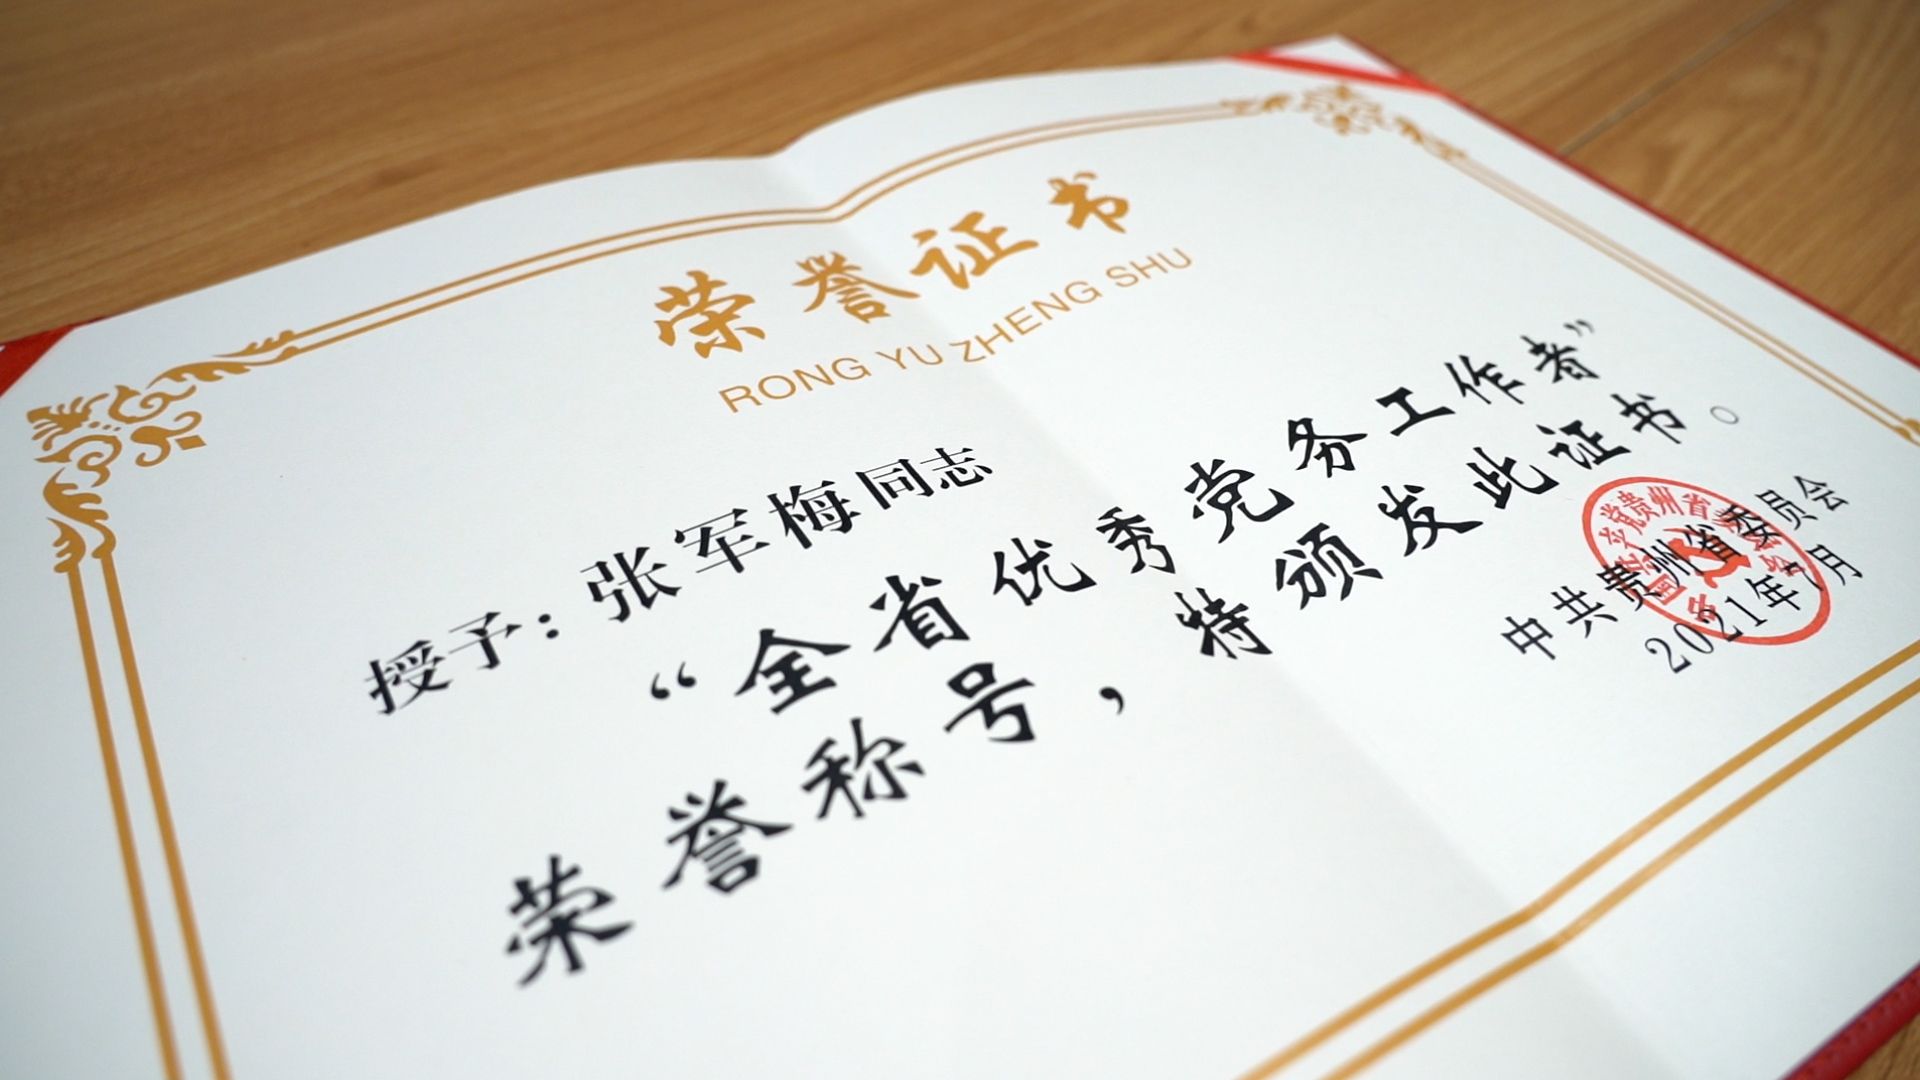 荣誉证书
RONG YU ZHENG SHU
授予：张军梅同志
“全省优秀党务工作者”
荣誉称号，特颁发此证书。
中共贵州省委员会
2021年7月